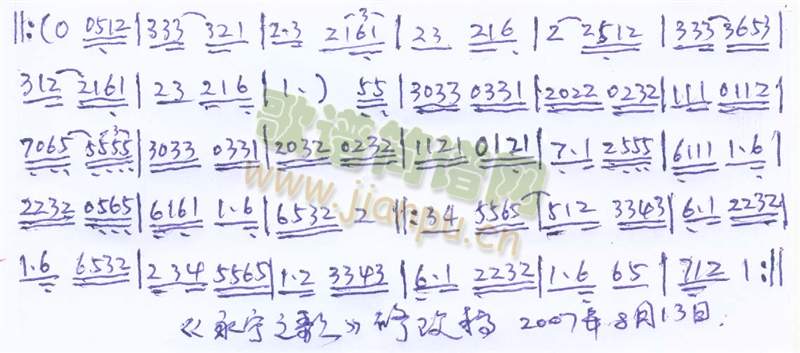 ‖:(0 0512|333 321|2·3 2161|23 216|2 2512|333 3653|
312 2161|23 216|1·) 55|3033 0331|2022 0232|111 0112|
7065 5555|3033 0331|2032 0232|1121 0121|7·1 2555|6111 1·6|
2232 0565|6161 1·6|6532 2‖:34 5565|512 3343|6·1 2232|
1·6 6532|234 5565|1·2 3343|6·1 2232|1·6 65|712 1:‖
《永宁之歌》修改稿 2007年8月13日.
歌谱简谱网
www.jianpu.cn